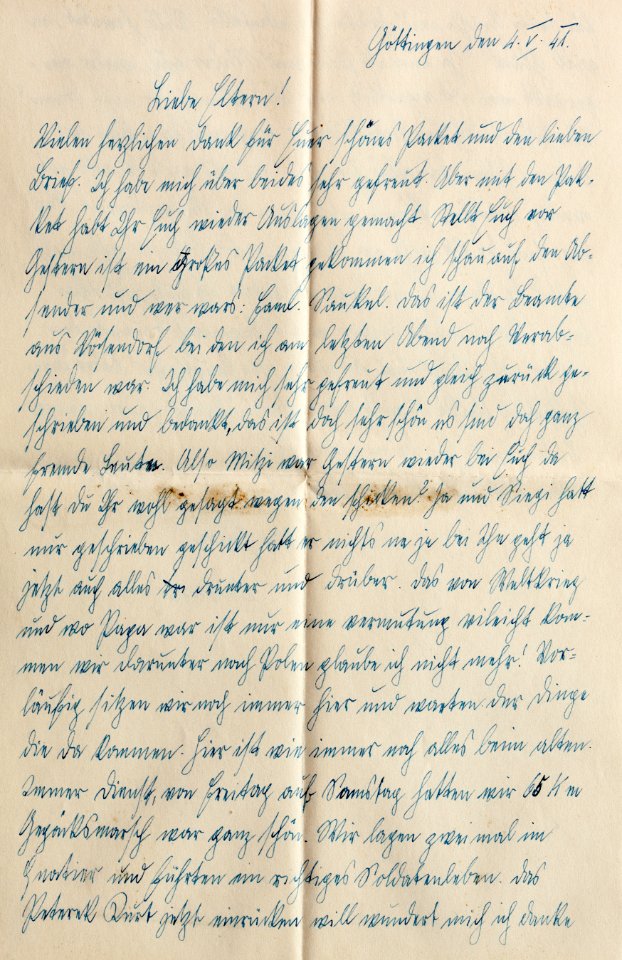 Göttingen den 4. V. 41.
Liebe Eltern!
Vielen herzlichen Dank für Euer schönes Packet und den lieben
Brief. Ich habe mich über beides sehr gefreut. Aber mit den Pak-
ket habt Ihr Euch wieder Auslagen gemacht Stellt Euch vor
Gestern ist ein Großes Packet gekommen ich schau auf den Ab-
sender und wer wars: Fam. Saukel. das ist der Beamte
aus Rösendorf bei den ich am letzten Abend noch Verab-
schieden war. Ich habe mich sehr gefreut und gleich zurück ge-
schrieben und bedankt, das ist doch sehr schön es sind doch ganz
fremde Leute. Also Mitzi war Gestern wieder bei Euch da
hast du Ihr wohl gesagt wegen den schicken? Ja und Siegi hatt
nur geschrieben geschickt hatt er nichts na ja bei Ihn geht ja
jetzt auch alles drunter und drüber. das von Weltkrieg
und wo Papa war ist nur eine vermutung vileicht kom-
men wir darunter nach Polen glaube ich nicht mehr! Vor-
läufig sitzen wir noch immer hier und warten der dinge
die da kommen. hier ist wie immer noch alles beim alten.
Immer dienst, von Freitag auf Samstag hatten wir 65 Km
Gepäcksmarsch war ganz schön. Wir lagen zwei mal im
Quatier und führten ein richtiges Soldatenleben. das
Peterek Kurt jetzt einrücken will wundert mich ich danke